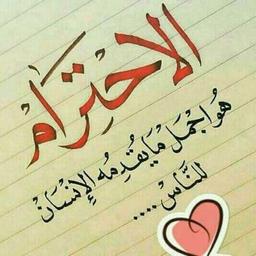 الاحْتِرَام
هُوَ اجْمَل مَا يُقَدِمُه الإِنْسَان
للنَّاسْ ....